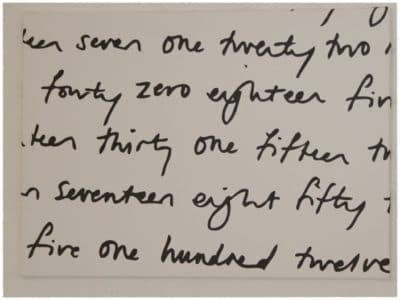 teen seven one twenty two
fourty zero eighteen fiv
teen thirty one fifteen tw
n seventeen eight fifty
five one hundred twelve